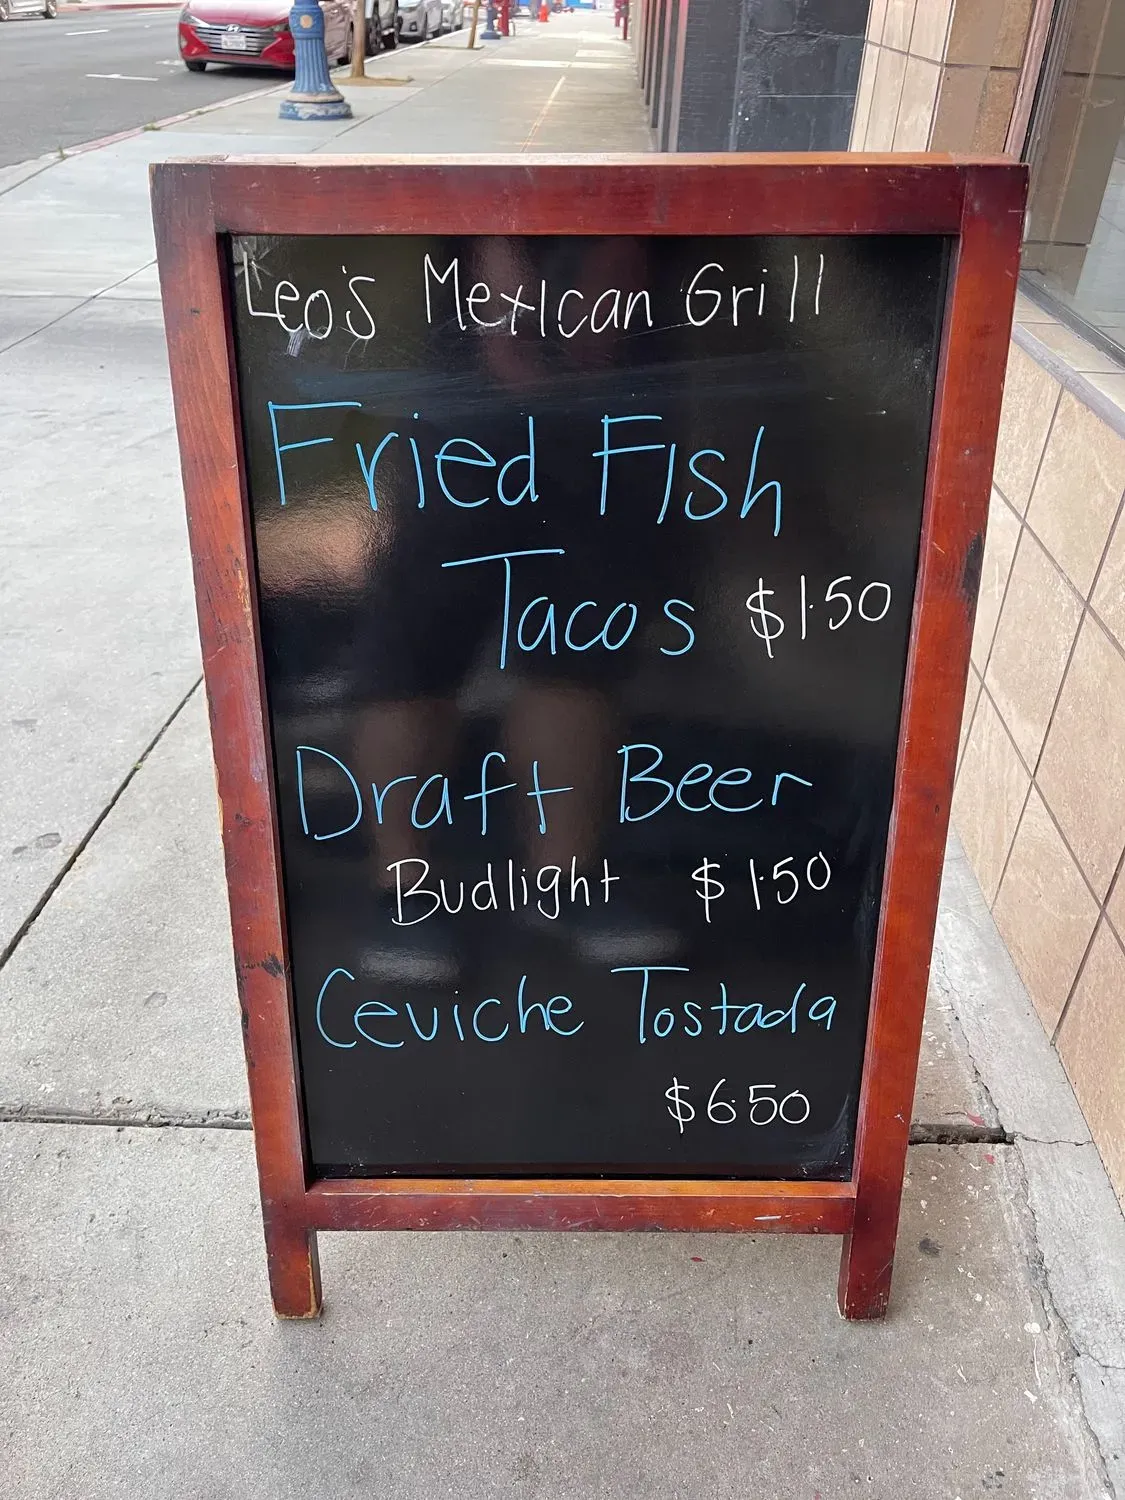 Leo's Mexican Grill
Fried Fish
Tacos $1.50
Draft Beer
Budlight $1.50
Ceviche Tostada
$6.50